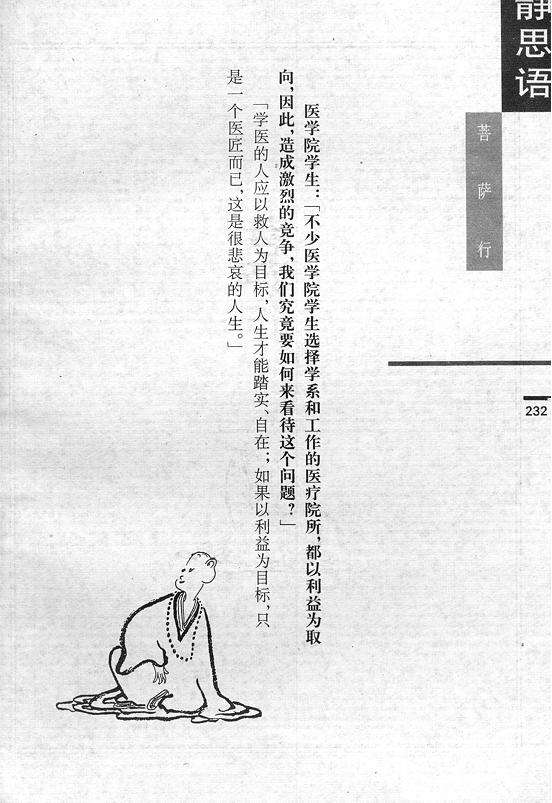 静思语
菩萨行
232
医学院学生：「不少医学院学生选择学系和工作的医疗院所，都以利益为取
向，因此，造成激烈的竞争，我们究竟要如何来看待这个问题？」
「学医的人应以救人为目标，人生才能踏实、自在；如果以利益为目标，只
是一个医匠而已，这是很悲哀的人生。」